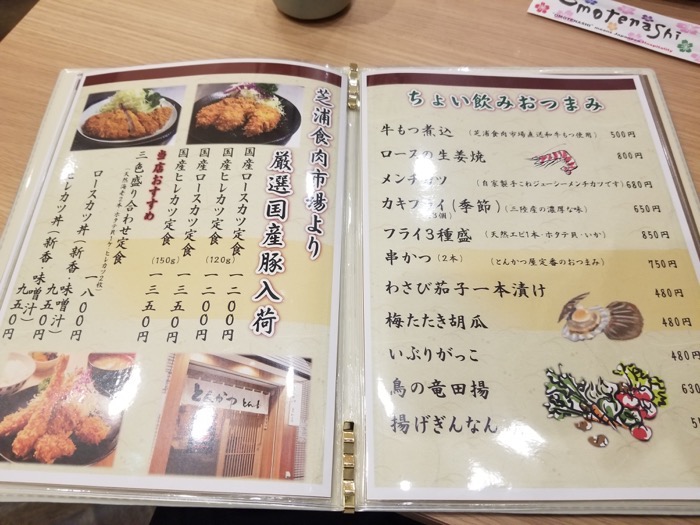 Omotenashi
芝浦食肉市場より
厳選国産豚入荷
国産ロースカツ定食 (120g) 一二〇〇円
国産ヒレカツ定食 (120g) 一二〇〇円
国産ロースカツ定食 (150g) 一三五〇円
国産ヒレカツ定食 (150g) 一三五〇円
当店おすすめ
三色盛り合わせ定食 一八〇〇円
ロースカツ丼(新香・味噌汁) 九五〇円
ヒレカツ丼(新香・味噌汁) 九五〇円
とんかつ
ちょい飲みおつまみ
牛もつ煮込 (芝浦食肉市場直送和牛もつ使用) 500円
ロースの生姜焼 800円
メンチカツ (自家製手こねジューシーメンチカツです) 680円
カキフライ(季節) (三陸産の濃厚な味) 650円
3個)
フライ3種盛 (天然エビ1本・ホタテ貝・いか) 850円
串かつ(2本) (とんかつ屋定番のおつまみ) 750円
わさび茄子一本漬け 480円
梅たたき胡瓜 480円
いぶりがっこ 480円
鳥の竜田揚 630
揚げぎんなん